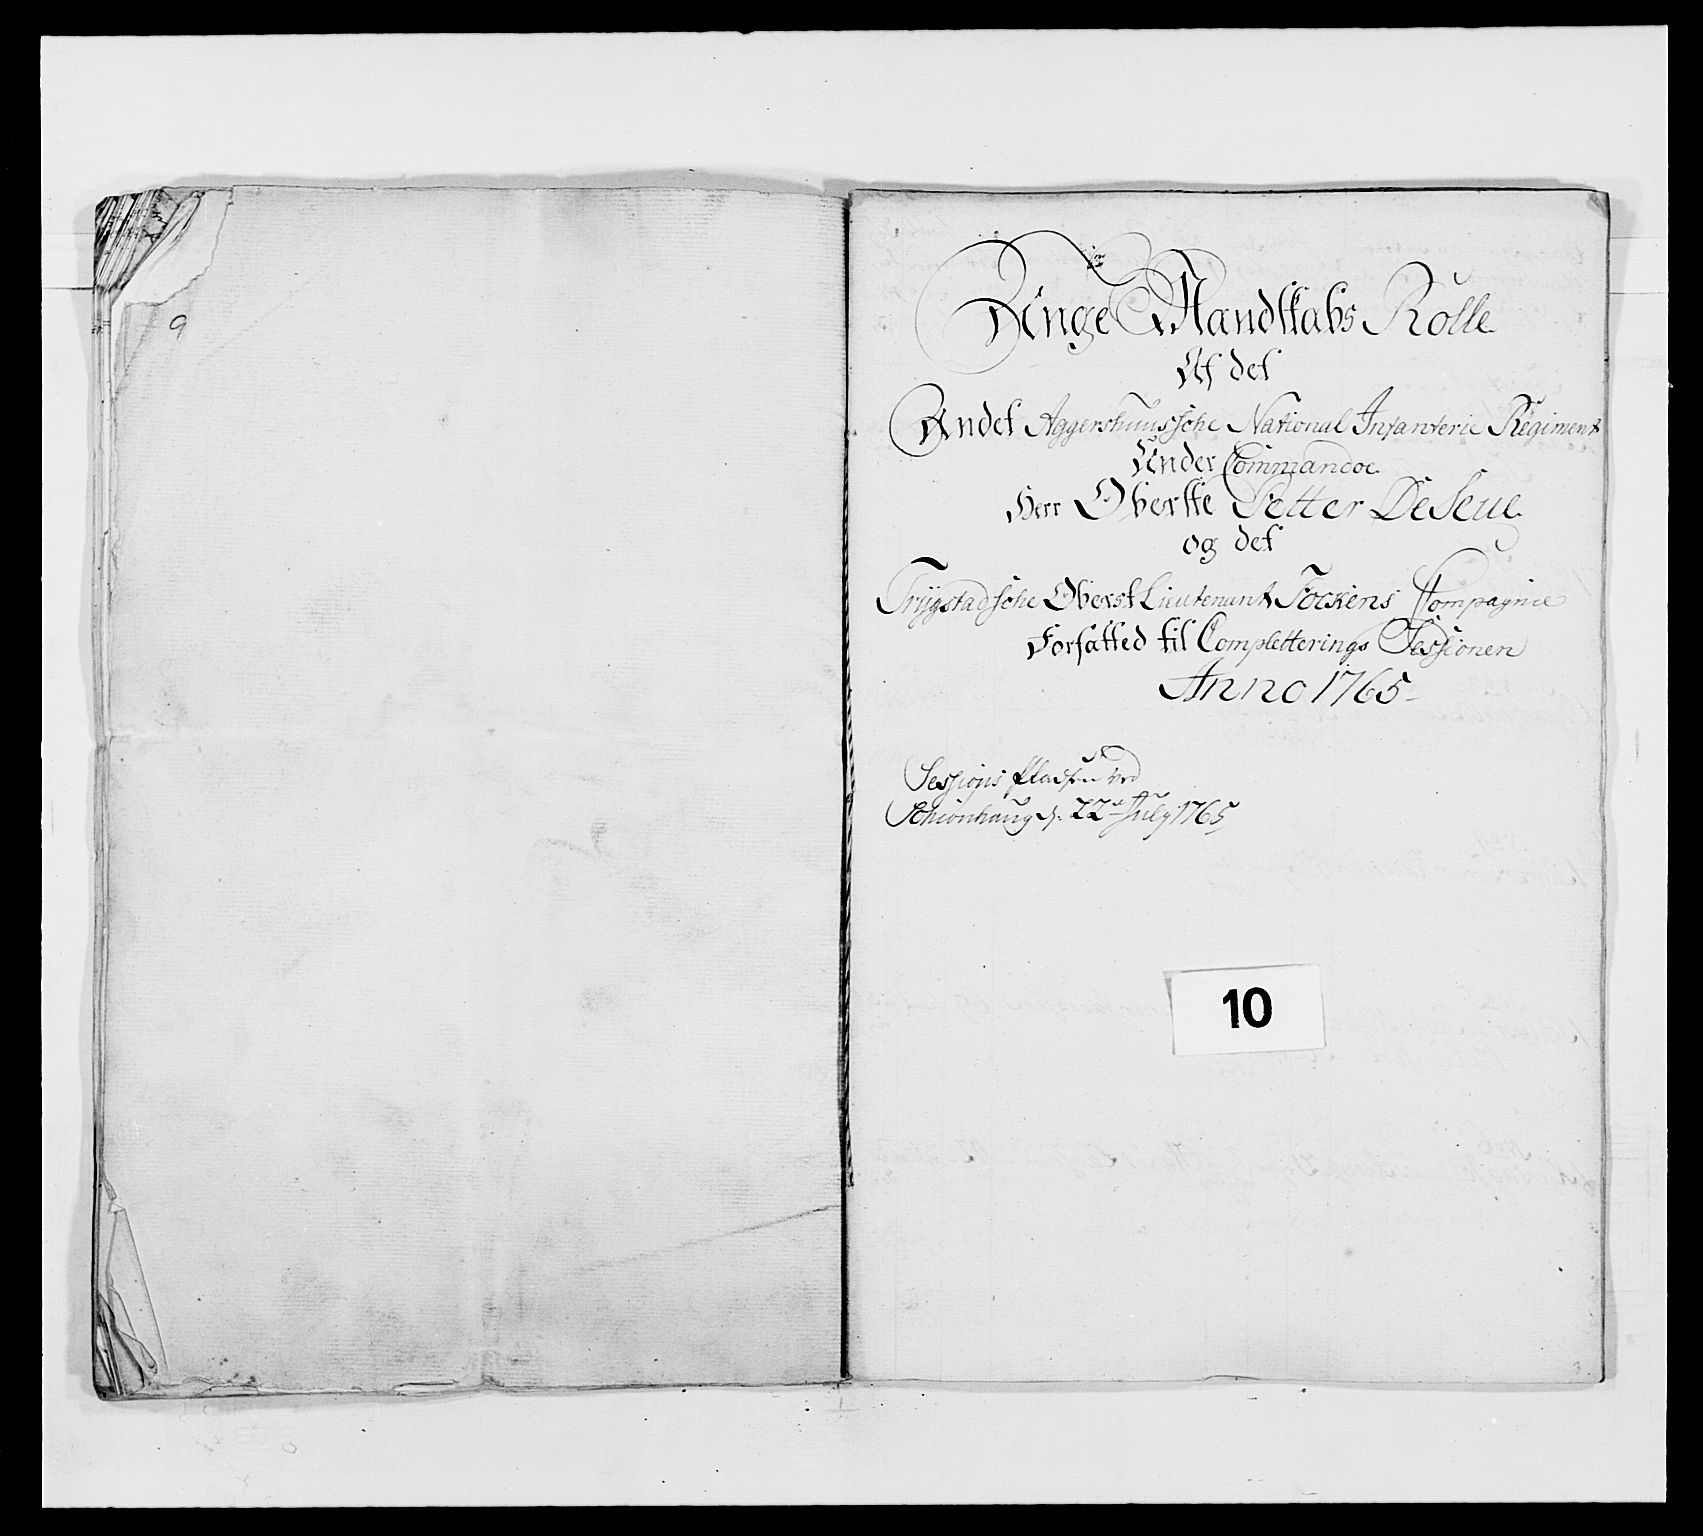 9
Unge Mandskabs Rolle
Af det
Andet Aggershuussche National Infanterie Regiment
Under Commandoe
Herr Oberste Petter De Seue
og det
Trygstadsche Oberst Lieutenant Fockens Compagnie
Forfatted til Completterings Sessionen
Anno 1765
Sessions Pladsen ved
Schionhaug d. 22de July 1765
10
3